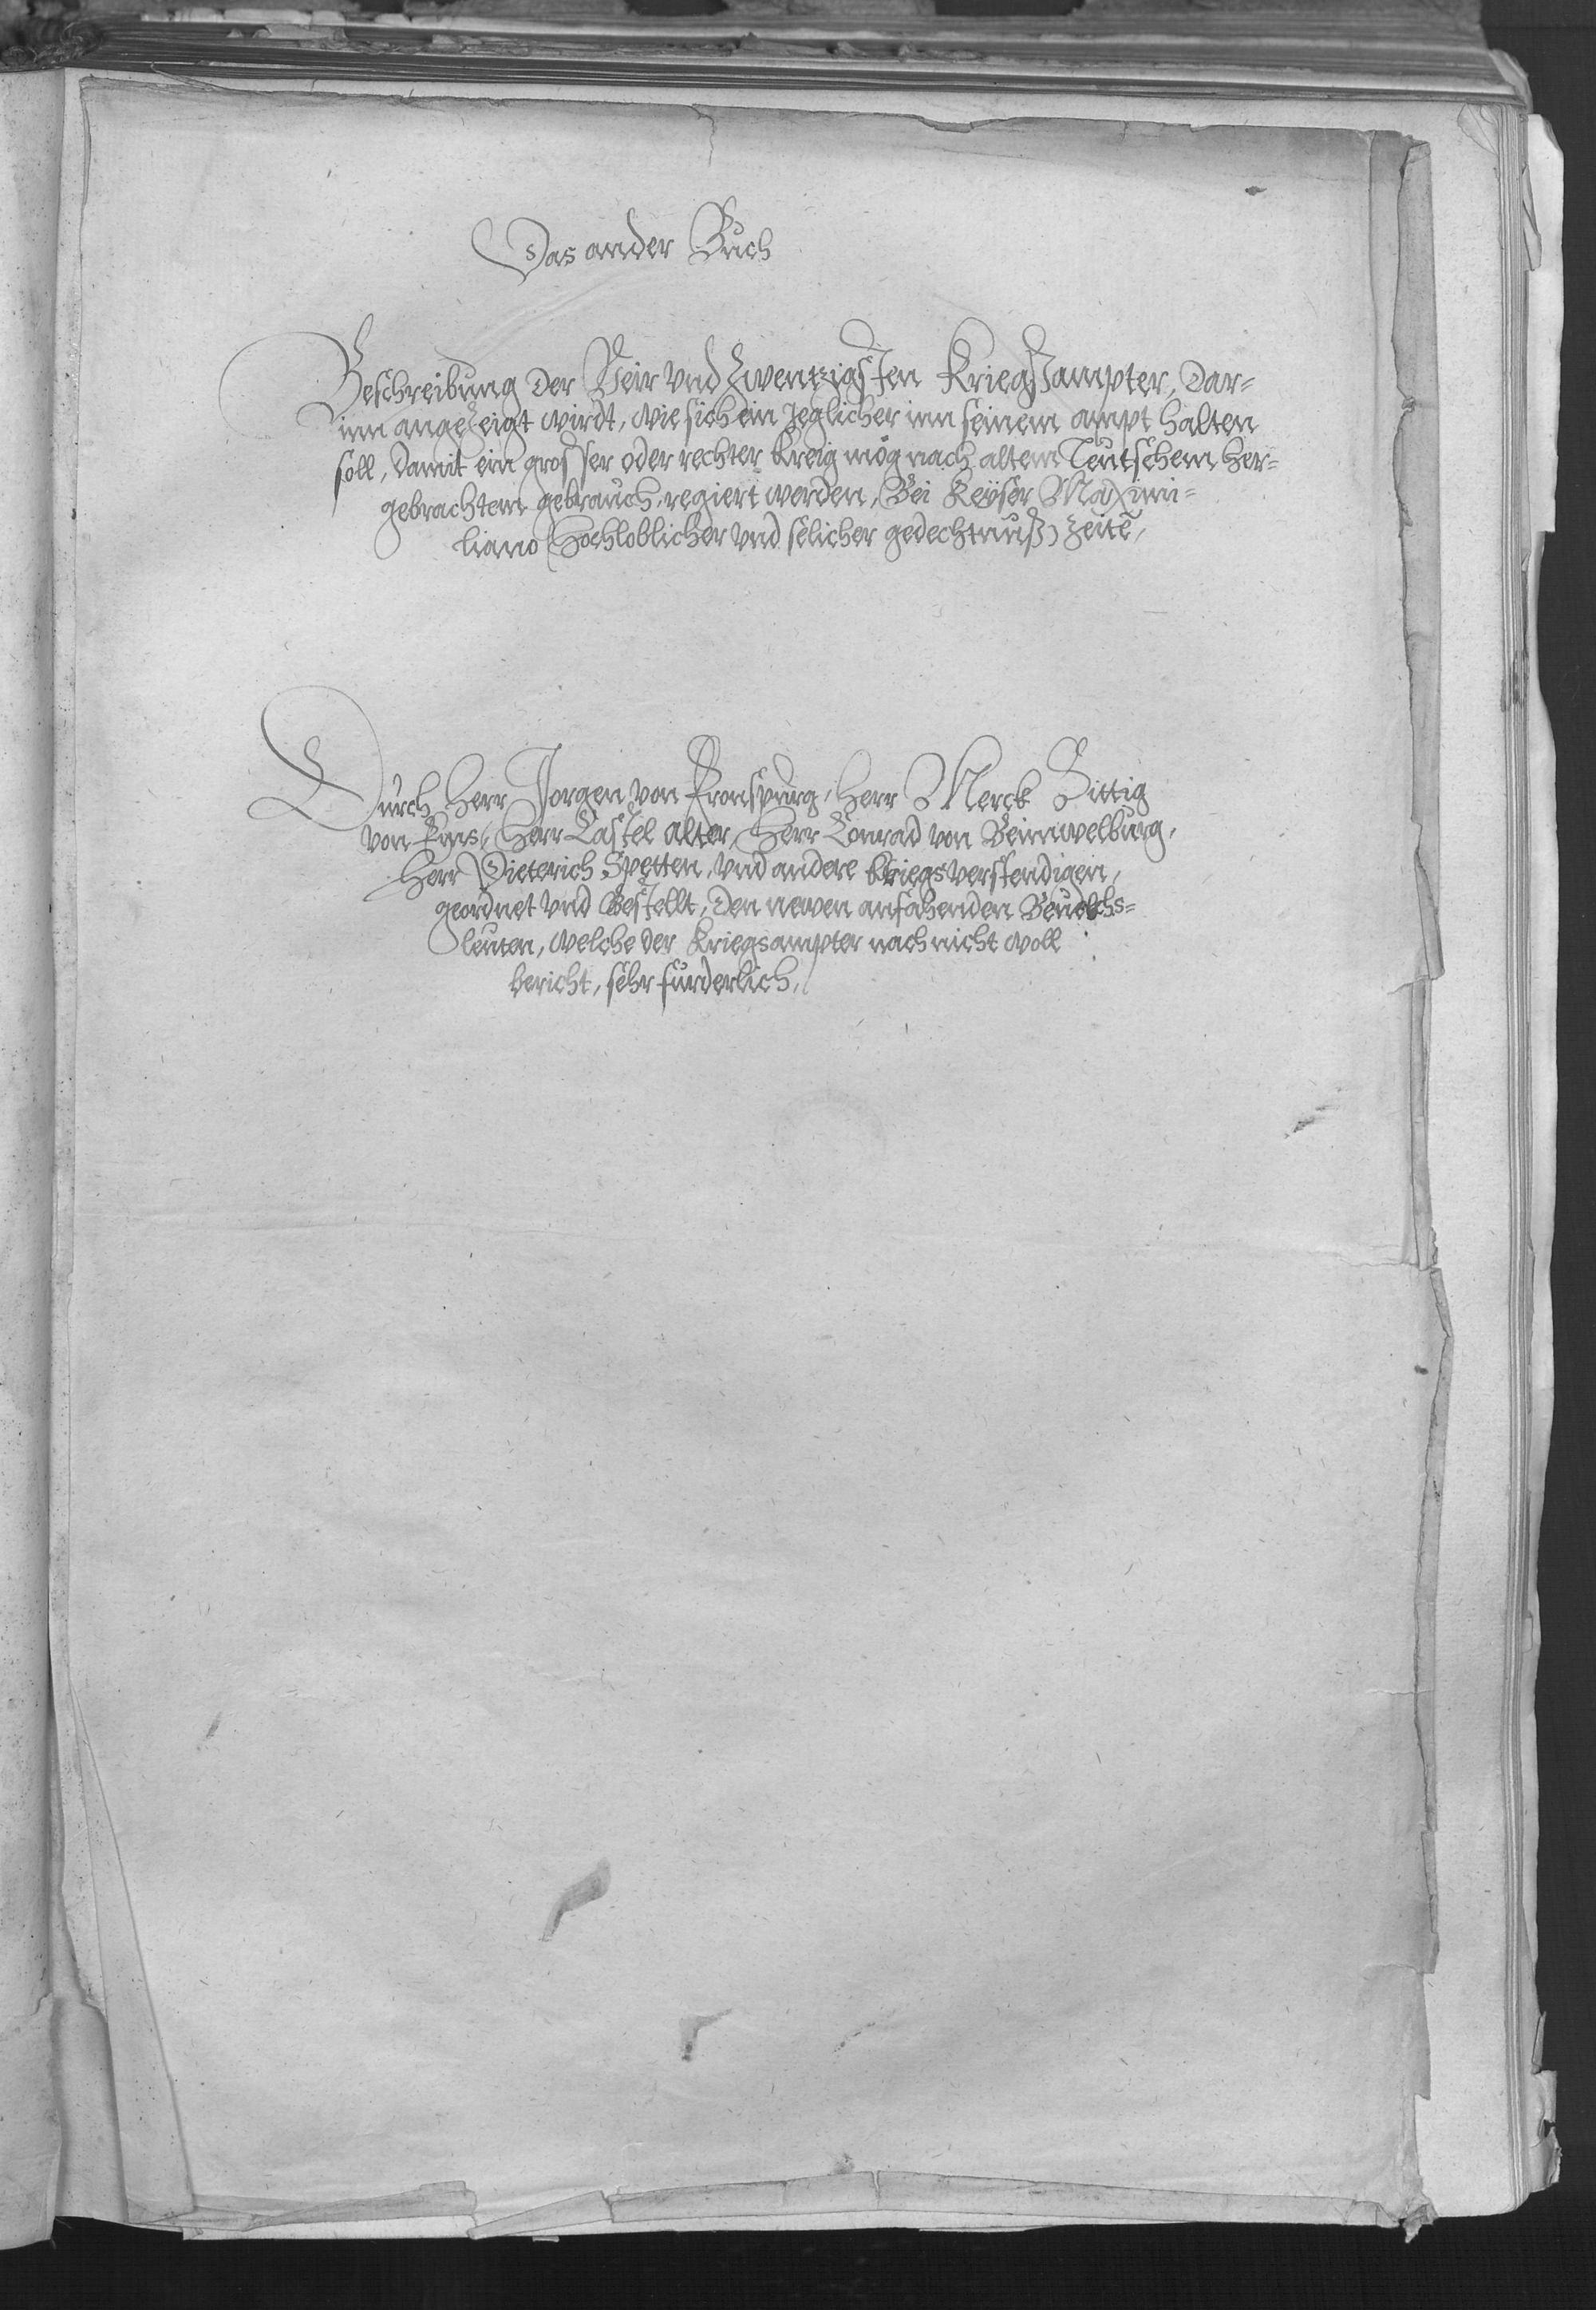 Das ander Buch
Beschreibung der Veir vnd zwentzigsten Kriegsampter, Dar=
inn angezeigt wirdt, wie sich ein Jeglicher inn seinem ampt halten
soll, damit ein grosser oder rechter kreig mög nach altem Teutschem her=
gebrachtem gebrauch, regiert werden, Bei Keÿser Maximi=
liano (Hochloblicher vnd selicher gedechtnuß) zeitē,
Durch Herr Jorgen von Fronspurg, Herr Merck Sittig
von Embs, Herr Castel alter, Herr Conrad von Beimmelburg,
Herr Dieterich Spetten, vnd andere kriegsverstendigen,
geordnet vnd Bestellt, den newen anfahenden Beuelchs=
leuten, welche der Kriegsampter nach nicht woll
bericht, sehr furderlich,